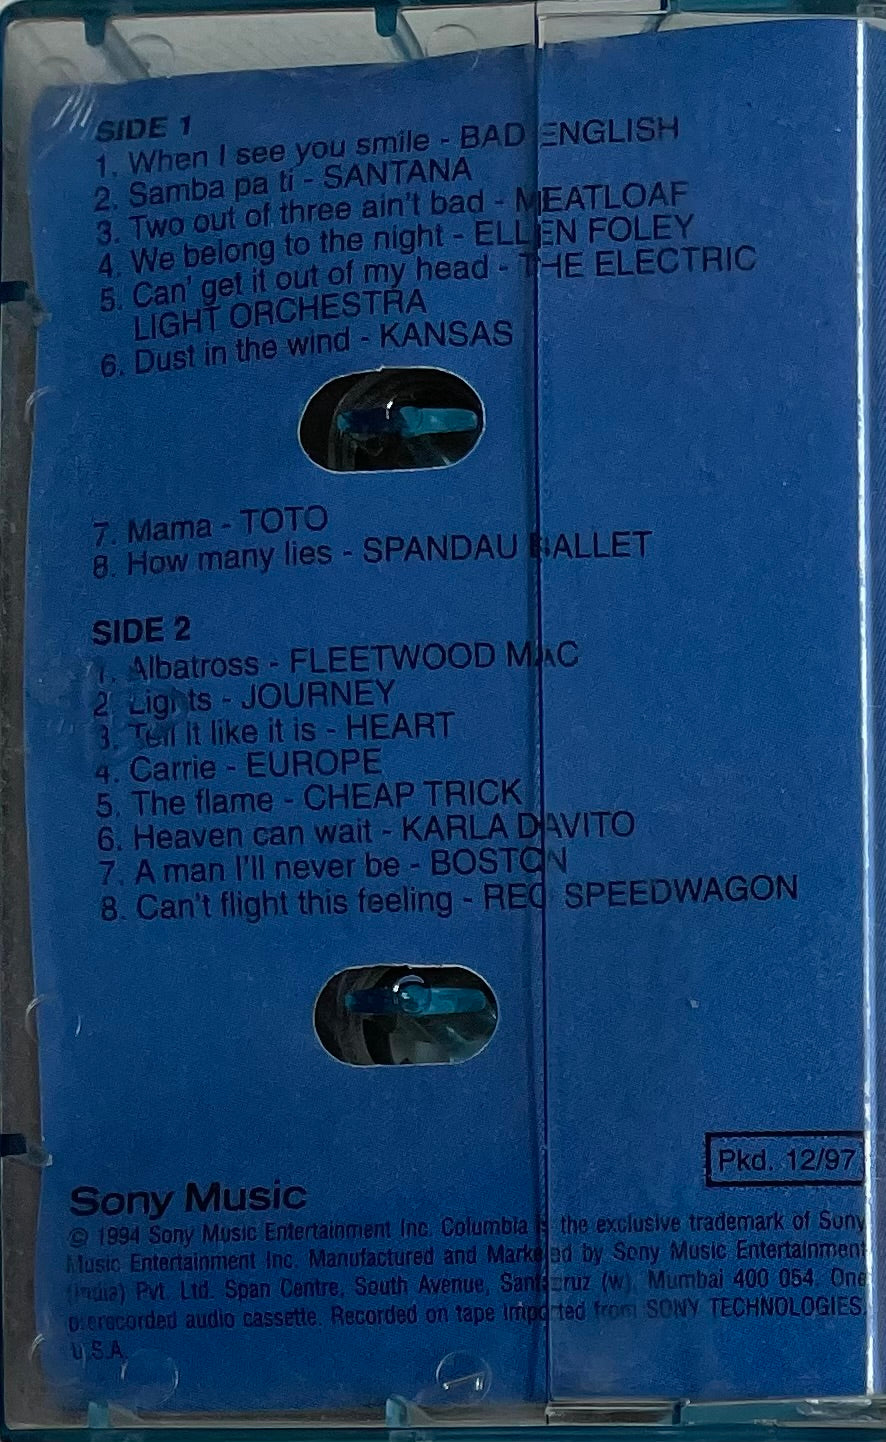 SIDE 1
1. When I see you smile - BAD ENGLISH
2. Samba pa ti - SANTANA
3. Two out of three ain't bad - MEATLOAF
4. We belong to the night - ELLEN FOLEY
5. Can' get it out of my head - THE ELECTRIC
LIGHT ORCHESTRA
6. Dust in the wind - KANSAS
7. Mama - TOTO
8. How many lies - SPANDAU BALLET
SIDE 2
1. Albatross - FLEETWOOD MAC
2. Lights - JOURNEY
3. Tell it like it is - HEART
4. Carrie - EUROPE
5. The flame - CHEAP TRICK
6. Heaven can wait - KARLA DAVITO
7. A man I'll never be - BOSTON
8. Can't flight this feeling - REO SPEEDWAGON
Pkd. 12/97
Sony Music
© 1994 Sony Music Entertainment Inc. Columbia is the exclusive trademark of Sony
Music Entertainment Inc. Manufactured and Marketed by Sony Music Entertainment
(India) Pvt. Ltd. Span Centre, South Avenue, Santacruz (w), Mumbai 400 054. One
prerecorded audio cassette. Recorded on tape imported from SONY TECHNOLOGIES,
U.S.A.